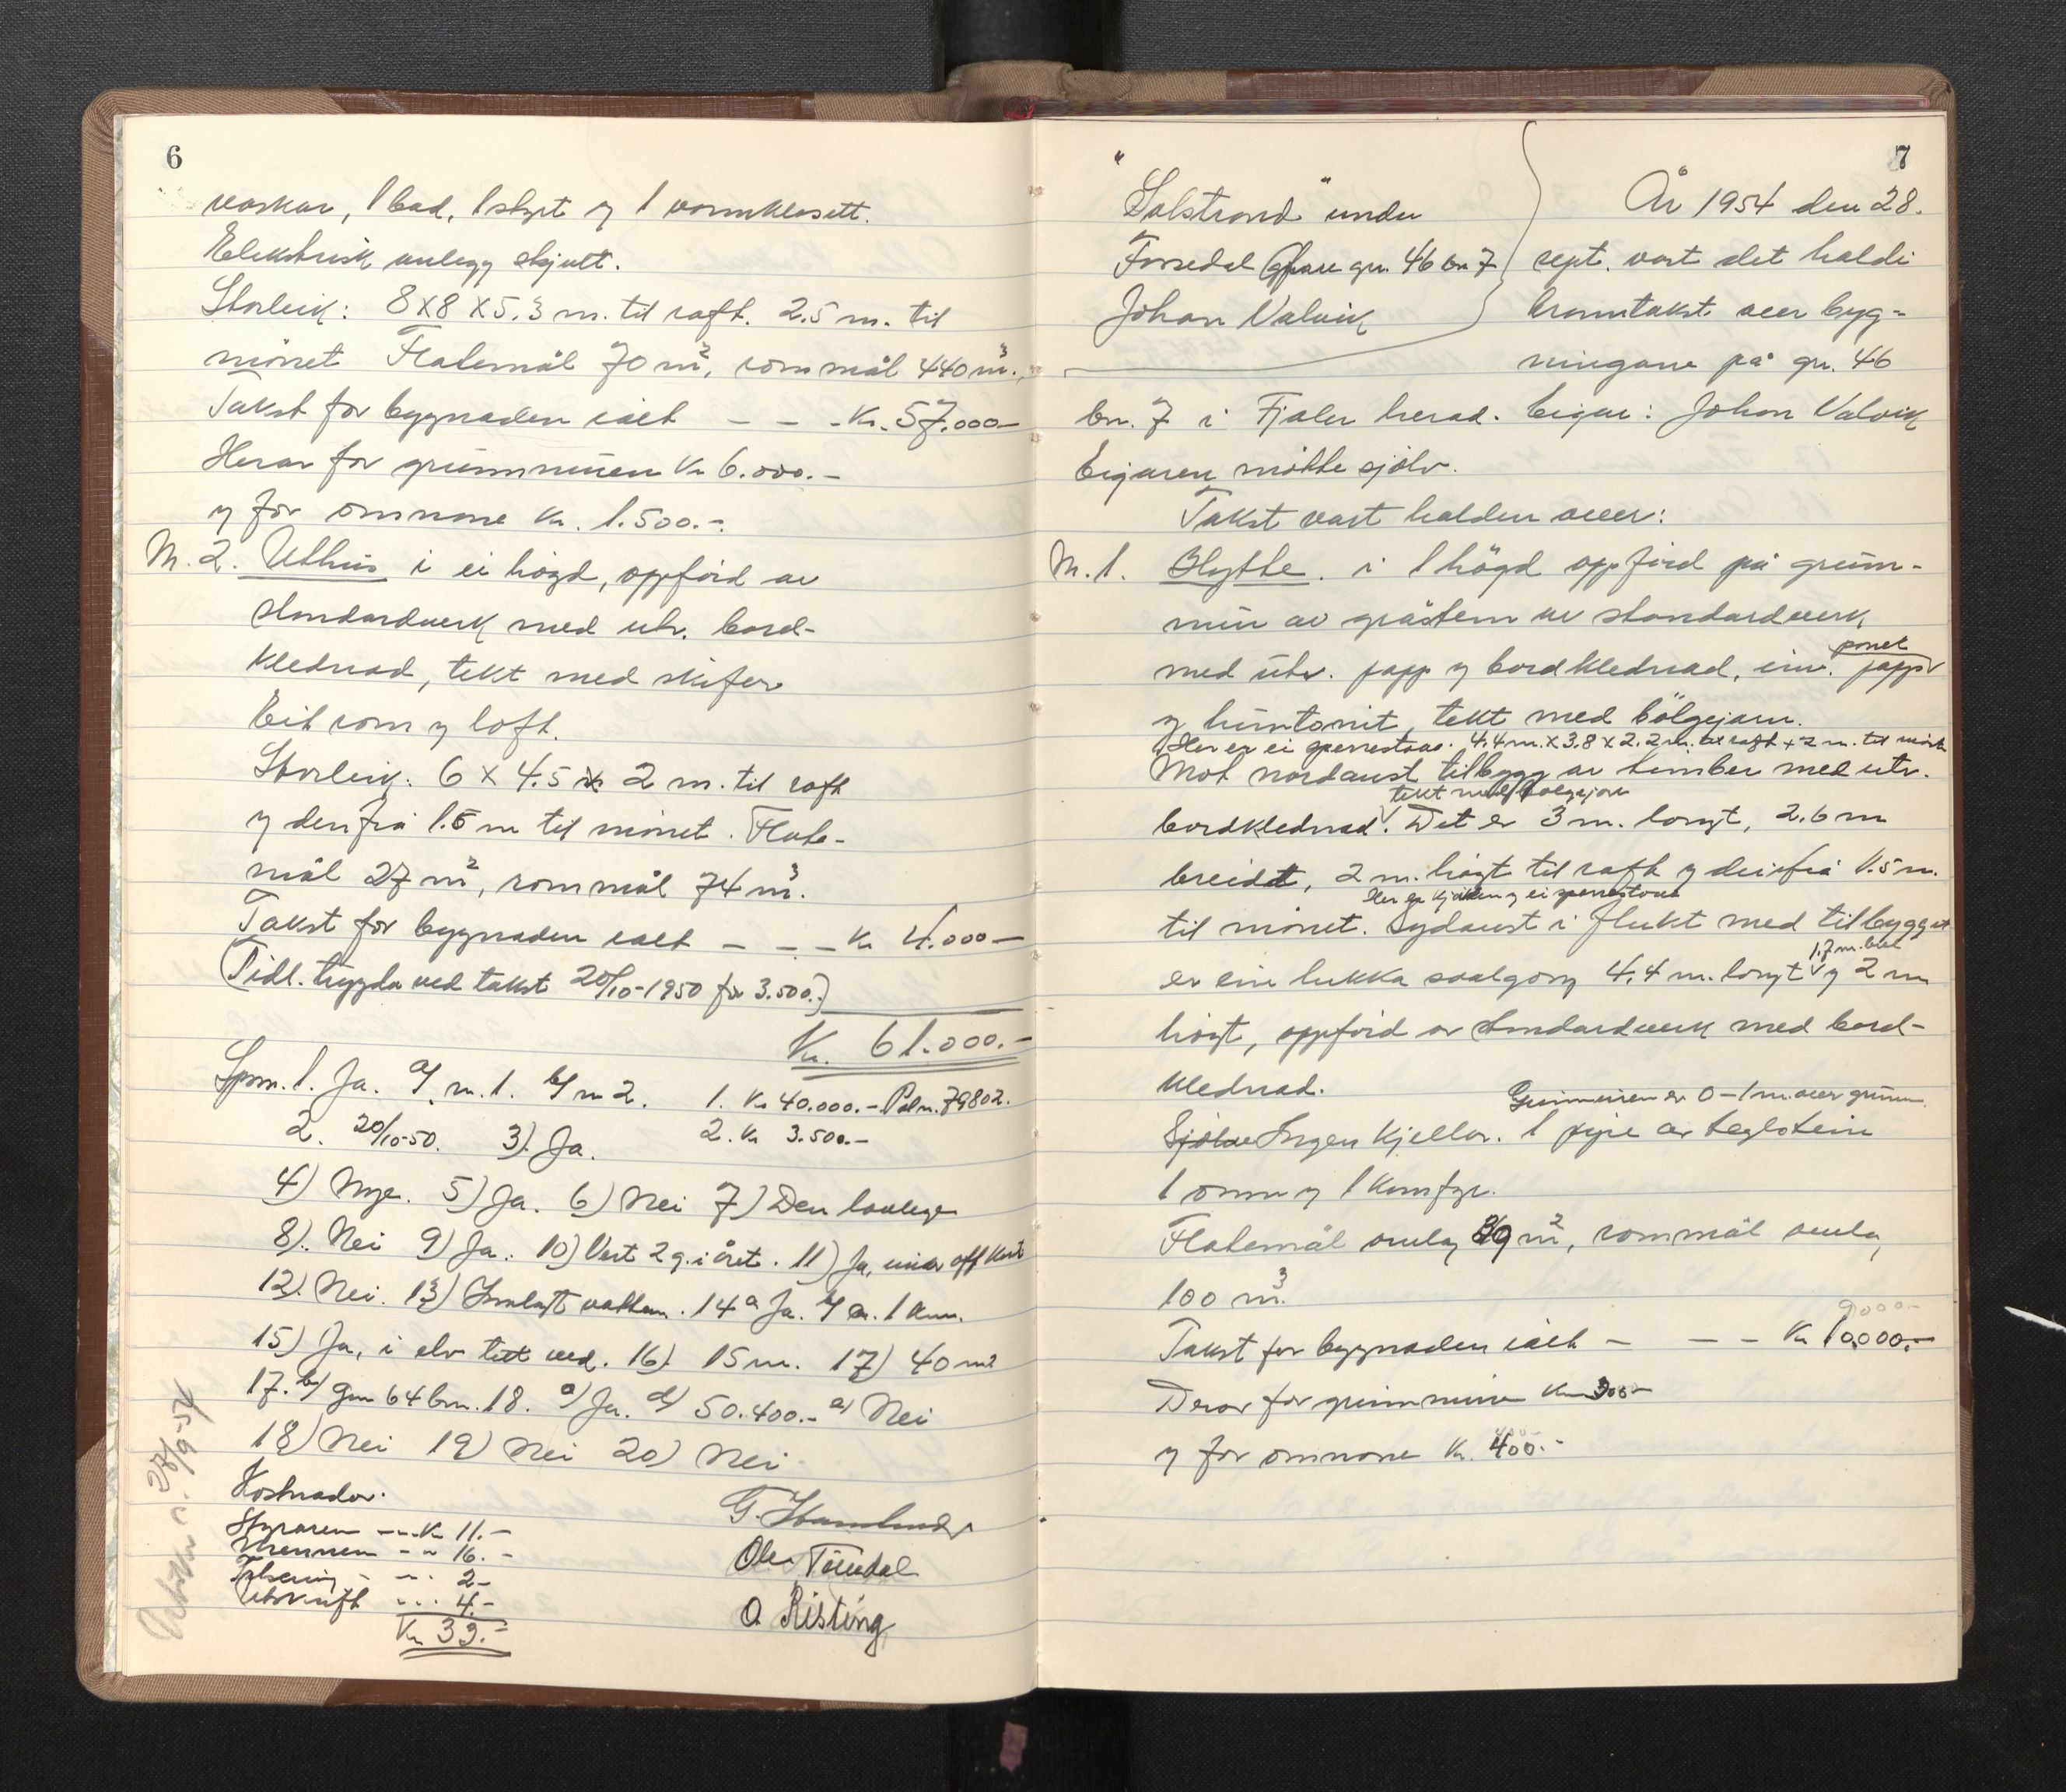 6
vaskar, 1 bad, 1 skyt og 1 vannklosett.
Elektrisk anlegg skjult.
Storleik: 8 x 8 x 5.3 m. til raft. 2.5 m. til
mönet Flatemål 70 m², rommål 440 m³.
Takst for bygnaden ialt — — - Kr. 57.000—
Herav for grunnmuren Kr 6.000.—
og for omnane Kr. 1.500.-
M. 2. Uthus i ei högd, oppförd av
standardverk med utv. bord-
klednad, tekt med skifer
Eit rom og loft.
Storleik: 6 x 4.5 x 2 m. til raft
og derifrå 1.5 m til mönet. Flate-
mål 27 m², rommål 74 m³.
Takst for bygnaden ialt — — — Kr 4.000—
(Tidl. trygda ved takst 20/10-1950 for 3.500.)
Kr. 61.000.-
Spm. 1. Ja. a/ m. 1. b/ m 2. 1. Kr 40.000.- Pol.n. 79802.
2. 20/10-50. 3). Ja. 2. Kr 3.500.—
4) Mye. 5) Ja. 6) Nei 7) Den lovlege
8). Nei 9) Ja. 10) Vert 2 g. i året. 11) Ja, under off. Kont
12). Nei. 13) Innlagt vatten. 14 a Ja. b/ Ca. 1 km.
15) Ja, i elv tett ved. 16). 15 m. 17) 40 m²
17. b/ Gnr 64 bnr. 18. a) Ja. d) 50.400.- e) Nei
18) Nei 19) Nei 20) Nei
Kostnader.
Styraren — .. Kr 11.—
Mennene - " 16.—
2—
Utskrift ... 4.—
Kr 33.-
G.
Ole
O. Risting
28/9-54
7
"Solstrand" under
Forsedal gnr. 46 bn 7
Johan Valvik
År 1954 den 28.
sept. vart det haldi
branntakst over byg-
ningane på gnr. 46
bn. 7 i Fjaler herad. Eigar: Johan Valvik
Eigaren mötte sjölv.
Takst vart halden over:
M. 1. Hytte. i 1 högd oppförd på grunn-
mur av gråstein av standardverk
med utv. papp og bordklednad, inv. papp
panel
og huntonit, tekt med bölgejarn.
Her er ei sperrestove. 4.4 m. x 3.8 x 2.2 m. til raft + 2 m. til mönet
Mot nordaust tilbygg av tömber med utv.
tekt med bölgejarn
bordklednad. Det er 3 m. langt, 2.6 m
breidt, 2 m. högt til raft og derifrå 1.5 m.
Her er kjöken og ei sperrestove
til mönet. Sydaust i flukt med tilbygget
1.7 m. breit
er ein lukka svalgang 4.4 m. langt og 2 m
högt, oppförd av standardverk med bord-
klednad.
Grunnmuren er 0 – 1 m. over grunn.
Sjölve Ingen Kjellar. 1 pipe av teglstein
1 omn og 1 komfyr.
Flatemål omlag m², rommål omlag
100 m³.
9000.-
Takst for bygnaden ialt — — — Kr 10.000.-
Derav for grunnmuren Kr 300—
og for omnane Kr. 400.-